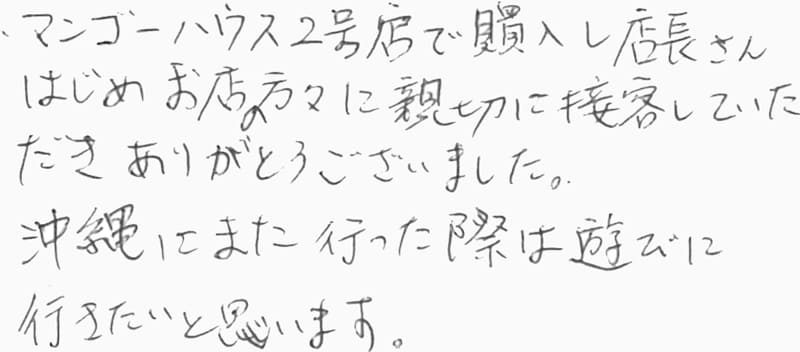 ・マンゴーハウス2号店で購入し店長さん
はじめお店の方々に親切に接客していた
だきありがとうございました。
沖縄にまた行った際は遊びに
行きたいと思います。